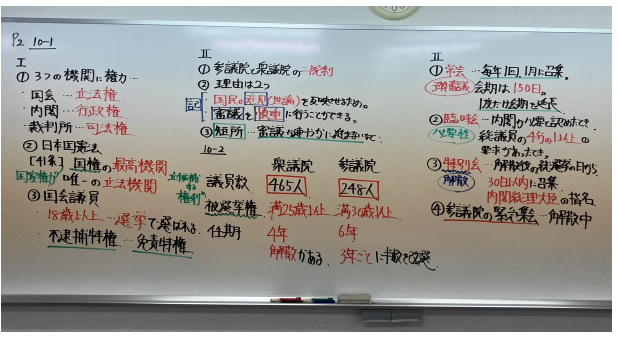 P2 10-1
I
① 3つの機関に権力…
・国会…立法権
・内閣…行政権
・裁判所…司法権
② 日本国憲法
[41条] 国権の最高機関
唯一の立法機関
③ 国会議員
・18歳以上…選挙で選ばれる
・不逮捕特権…免責特権
II
① 参議院と衆議院の…院制
② 理由は2つ
記
国民の(世論)を反映させるため。
審議を慎重に行うことができる。
③ 短所…審議が速やかに進まない
10-2
衆議院 参議院
議員数 465人 248人
被選挙権 満25歳以上 満30歳以上
任期 4年 6年
解散がある 3年ごとに半数を改選
II
① 常会…毎年1回、1月に召集。
会期は150日。
② 臨時会…内閣が必要と認めたとき
総議員の4分の1以上の
要求があったとき。
③ 特別会…解散後の総選挙の日から
解散 30日以内に召集
内閣総理大臣の指名
④ 参議院の緊急集会…解散中